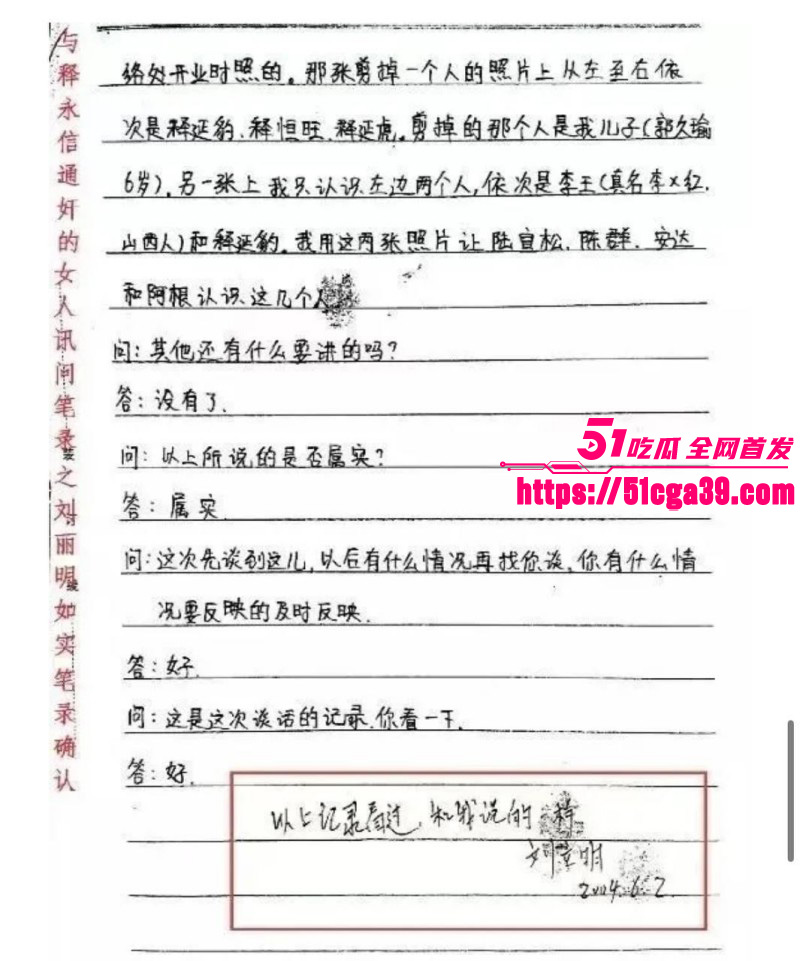 与释永信通奸的女人讯问笔录之刘丽明如实笔录确认
络处开业时照的。那张剪掉一个人的照片上从左至右依
次是释延豹、释恒旺、释延虎。剪掉的那个人是我儿子(郭久瑜
6岁)。另一张上我只认识左边两个人,依次是李王(真名李×红.
山西人)和释延豹。我用这两张照片让陆宜松、陈群、安达
和阿根认识这几个人
问:其他还有什么要讲的吗?
答:没有了.
问:以上所说的是否属实?
51吃瓜 全网首发
https://51cga39.com
答:属实
问:这次先谈到这儿,以后有什么情况再找你谈,你有什么情
况要反映的及时反映.
答:好.
问:这是这次谈话的记录.你看一下.
答:好.
以上记录看过,和我说的一样
刘立明
2004.6.2